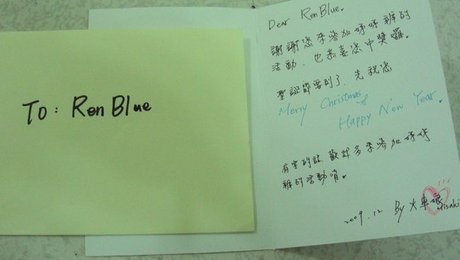 To: Ron Blue
Dear Ron Blue。
謝謝您來參加呼呼辦的
活動，也恭喜您中獎囉。
聖誕節要到了，先祝您
Merry Christmas &
Happy New Year。
有空的話，歡迎多來參加呼呼
辦的活動唷。
2009.12 By 火車
Misaki